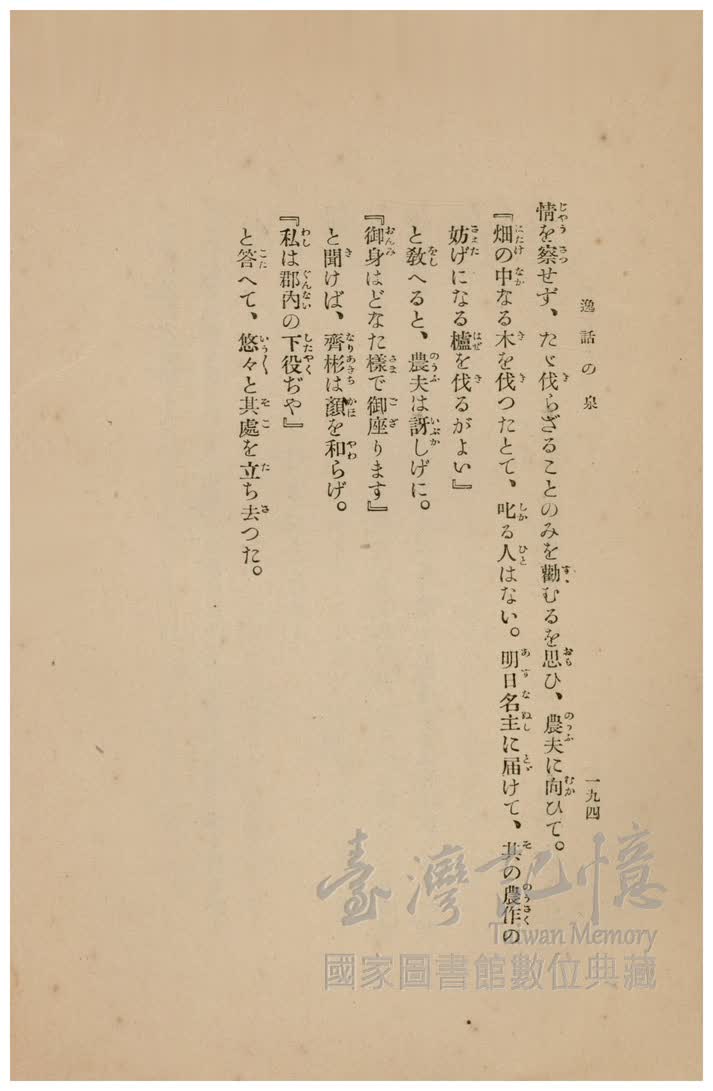 逸話の泉
一九四
情を察せず、たゞ伐らざることのみを勸むるを思ひ、農夫に向ひて。
『畑の中なる木を伐つたとて、叱る人はない。明日名主に届けて、其の農作の
妨げになる櫨を伐るがよい』
と敎へると、農夫は訝しげに。
『御身はどなた樣で御座ります』
と聞けば、齊彬は顏を和らげ。
『私は郡內の下役ぢや』
と答へて、悠々と其處を立ち去つた。
臺灣記憶
Taiwan Memory
國家圖書館數位典藏